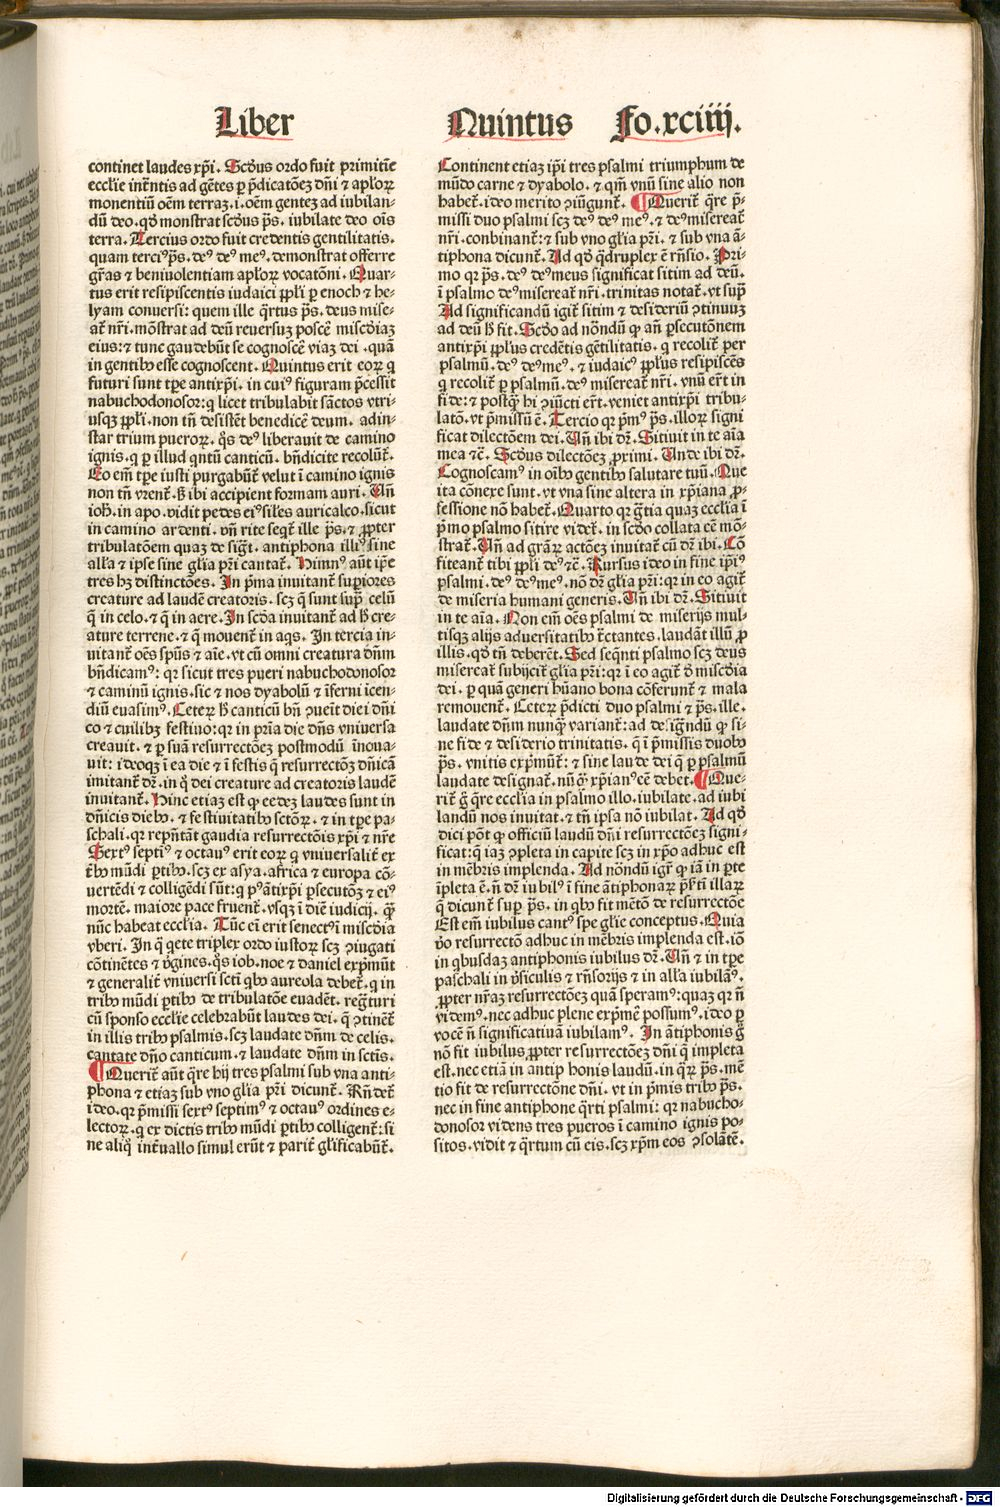 Liber Quintus Fo.xciiij.
continet laudes xp̄i. Scd̓us ordo fuit primitie
ecclie intēntis ad gētes ꝑ p̄dicatōez dn̄i ⁊ aploꝝ
monentiū oēm terraꝫ.i.oēm genteꝫ ad iubilan⸗
dū deo.qđ monstrat scd̓us ps̄. iubilate deo oīs
terra. Tercius ordo fuit credentis gentilitatis.
quam terciꝰ ps̄.deꝰ deꝰ meꝰ.demonstrat offerre
gr̄as ⁊ beniuolentiam aploꝝ vocatōni. Quar⸗
tus erit resipiscentis iudaici ꝓpl̓i ꝑ enoch ⁊ he⸗
lyam conuersi: quem ille q̄rtus ps̄. deus mise⸗
at̄ nr̄i.mōstrat ad deū reuersuꝫ poscē misc̄diaꝫ
eius:⁊ tunc gaudebūt se cognoscē viaꝫ dei .quā
in gentibꝰ esse cognoscent. Quintus erit eoꝝ q̄
futuri sunt tp̄e antixp̄i. in cuiꝰ figuram p̄cessit
nabuchodonosor:q̄ licet tribulabit sāctos vtri⸗
usqꝫ ꝓpl̓i.non tn̄ desistēt benedicē deum. ad in⸗
star trium pueroꝝ. q̄s deꝰ liberauit de camino
ignis.q̄ ꝑ illud qntū canticū. bn̄dicite recolūt̄.
Eo em̄ tp̄e iusti purgabūt̄ velut ī camino ignis
non tn̄ vrent̄.sꝫ ibi accipient formam auri. Vn̄
ioh̄.in apo.vidit pedes eiꝰ siles auricalco.sicut
in camino ardenti. vn̄ rite seqt̄ ille ps̄.⁊ ꝓpter
tribulatōem quaꝫ desigt̄. antiphona illiꝰ sine
alla ⁊ ipse sine gl̓ia pr̄i cantat̄. Himnꝰ aūt ip̄e
tres hꝫ distinctōes. In p̄ma inuitant̄ supiores
creature ad laudē creatoris. scꝫ q̄ sunt supͣ celū
q̄ in celo.⁊ q̄ in aere. In scd̓a inuitant̄ ad h̓ cre⸗
ature terrene.⁊ q̄ mouent̄ in aqs. In tercia in⸗
uitant̄ oēs spūs ⁊ aīe.vt cū omni creatura dn̄m
bn̄dicamꝰ: qr sicut tres pueri nabuchodonosor
⁊ caminū ignis.sic ⁊ nos dyabolū ⁊ īferni īcen⸗
diū euasimꝰ. Ceteꝝ h̓ canticū bn̄ ꝯuēit diei dn̄i
co ⁊ cuilibꝫ festino: qr in pr̄ia die dn̄s vniuersa
creauit.⁊ ꝑ suā resurrectōeꝫ postmodū īnoua⸗
uit: ideoqꝫ ī ea die ⁊ ī festis q̄ resurrectōꝫ dn̄icā
imitant̄ dr̄. in q̄ dei creature ad creatoris laudē
inuitant̄. Hinc etiaꝫ est ꝙ eedeꝫ laudes sunt in
dn̄icis diebꝰ.⁊ festiuitatibꝰ sctoꝝ.⁊ in tp̄e pa⸗
schali.qr rep̄ntāt gaudia resurrectōis xp̄i ⁊ nr̄e
Sextꝰ septiꝰ ⁊ octauꝰ erit eoꝝ q̄ vniuersalit̄ ex
tribꝰ mūdi ꝑtibꝰ.scꝫ ex asya.africa ⁊ europa cō⸗
uertēdi ⁊ colligēdi sūt:q̄ pꝰ ātixp̄i ꝑsecutōꝫ ⁊ eiꝰ
mortē. maiore pace fruent̄.vsqꝫ ī diē iudicij. qͣ
nūc habeat ecclia. Tūc em̄ erit senectꝰ ī misc̄dia
vberi. In q̄ qete triplex ordo iustoꝝ scꝫ ꝯiugati
cōtinētes ⁊ v̓gines.q̄s iob.noe ⁊ daniel exp̄mūt
⁊ generalit̄ vniuersi sctī qbꝰ aureola debet̄.q̄ in
tribꝰ mūdi ꝑtibꝰ de tribulatōe euadēt. reg̓turi
cū sponso ecclie celebrabūt laudes dei. q̄ ꝯtinēt̄
in illis tribꝰ psalmis.scꝫ laudate dn̄m de celis.
cantate dn̄o canticum.⁊ laudate dn̄m in sctis.
¶ Querit̄ aūt q̄re hij tres psalmi sub vna anti⸗
phona ⁊ etiaꝫ sub vno gl̓ia pr̄i dicunt̄. Rn̄det̄
ideo.qr p̄missi sextꝰ septimꝰ ⁊ octauꝰ ordines e⸗
lectoꝝ.q̄ ex dictis tribꝰ mūdi ꝑtibꝰ colligent̄: si
ne aliq̄ int̄uallo simul erūt ⁊ parit̄ gl̓ificabūt̄.
Continent etiaꝫ ip̄i tres psalmi triumphum de
mūdo carne ⁊ dyabolo.⁊ qm̄ vnū sine alio non
habet̄.ideo merito ꝯiūgunt̄. ¶ Querit̄ q̄re p̄⸗
missi duo psalmi scꝫ deꝰ deꝰ meꝰ.⁊ deꝰ misereat̄
nr̄i.combinant̄:⁊ sub vno gl̓ia pr̄i.⁊ sub vna ā⸗
tiphona dicunt̄. Ad qđ q̄druplex ē rn̄sio. Pri⸗
mo qr ps̄.deꝰ deꝰmeus significat sitim ad deū.
ī psalmo deꝰmisereat̄ nr̄i.trinitas notat̄.vt supͣ
Ad significandū igit̄ sitim ⁊ desideriū ꝯtinuuꝫ
ad deū h̓ fit. Scd̓o ad nōndū ꝙ an̄ ꝑsecutōnem
antixp̄i ꝓpl̓us credētis gētilitatis. q̄ recolit̄ per
psalmū.deꝰ deꝰmeꝰ.⁊ iudaicꝰ ꝓpl̓us resipiscēs
q̄ recolit̄ ꝑ psalmū.deꝰ misereat̄ nr̄i. vnū er̄t in
fide:⁊ postqͣ hi ꝯiūcti ert̄.veniet antixp̄i tribu⸗
latō.vt p̄missū ē. Tercio qr p̄mꝰ ps̄.illoꝝ signi
ficat dilectōem dei. Vn̄ ibi dr̄. Sitiuit in te aīa
mea ⁊c̄. Scd̓us dilectōeꝫ proximi. Vnde ibi dr̄.
Cognoscamꝰ in oībꝰ gentibꝰ salutare tuū. Que
ita cōnexe sunt.vt vna sine altera in xp̄iana ꝓ⸗
fessione nō habet̄. Quarto qr gr̄tia quaꝫ ecclia ī
p̄mo psalmo sitire videt̄. in scd̓o collata eē mō⸗
strat̄. Vn̄ ad gr̄aꝝ actōeꝫ inuitat̄ cū dr̄ ibi. Cō
fiteant̄ tibi ꝓpl̓i deꝰ ⁊c̄. Rursus ideo in fine ip̄iꝰ
psalmi.deꝰ deꝰmeꝰ.nō dr̄ gl̓ia pr̄i: qr in eo agit̄
de miseria humani generis. Vn̄ ibi dr̄. Sitiuit
in te aīa. Non em̄ oēs psalmi de miserijs mul⸗
tisqꝫ alijs aduersitatibꝰ tractantes.laudāt illū ꝓ
illis.qđ tn̄ deberēt. Sed seqn̄ti psalmo scꝫ deus
misereat̄ subijcit̄ gl̓ia pr̄i: qr ī eo agit̄ d̓ misc̄dia
dei. ꝑ quā generi hūano bona cōferunt̄ ⁊ mala
remouent̄. Ceteꝝ p̄dicti duo psalmi ⁊ ps̄.ille.
laudate dn̄m nunqͣ variant̄: ad desig̓ndū ꝙ si⸗
ne fide ⁊ desiderio trinitatis. q̄ ī p̄missis duobꝰ
ps̄. vnitis exp̄mūt̄: ⁊ sine laude dei q̄ ꝑ psalmū
laudate designat̄.nūqͣ xp̄ianꝰ eē debet. ¶ Que⸗
rit̄ g̊ q̄re ecclia in psalmo illo.iubilate.ad iubi
landū nos inuitat.⁊ tn̄ ipsa nō iubilat. Ad qđ
dici pōt ꝙ officiū laudū dn̄i resurrectōeꝫ signi⸗
ficat:q̄ iaꝫ ꝯpleta in capite scꝫ in xp̄o adhuc est
in mēbris implenda. Ad nōndū igr̄ ꝙ iā in ꝑte
īpleta ē.n̄ dr̄ iubilꝰ ī fine ātiphonaꝝ p̄fti illaꝝ
q̄ dicunt̄ supͣ ps̄.in qbꝰ fit mētō de resurrectōe
Est em̄ iubilus cantꝰ spe gl̓ie conceptus. Quia
v̓o resurrectō adhuc in mēbris implenda est.iō
in qbusdaꝫ antiphonis iubilus dr̄. Vn̄ ⁊ in tp̄e
paschali in v̓siculis ⁊ rn̄sorijs ⁊ in alla iubilāꝰ.
ꝓpter nr̄aꝫ resurrectōeꝫ quā speramꝰ:quaꝫ qr n̄
videmꝰ.nec adhuc plene exp̄mē possumꝰ.ideo ꝑ
vocē n̄ significatiuā iubilamꝰ. In ātiphonis g̊
nō fit iubilus ꝓpter resurrectōeꝫ dn̄i q̄ impleta
est.nec etiā in antiphonis laudū.in q̄r̄ ps̄.mē
tio fit de resurrectōne dn̄i. vt in p̄mis tribꝰ ps̄.
nec in fine antiphone q̄rti psalmi: qr nabucho⸗
donosor videns tres pueros ī camino ignis po⸗
sitos.vidit ⁊ q̄rtum cū eis.scꝫ xp̄m eos ꝯsolātē.
Digitalisierung gefördert durch die Deutsche Forschungsgemeinschaft - DFG